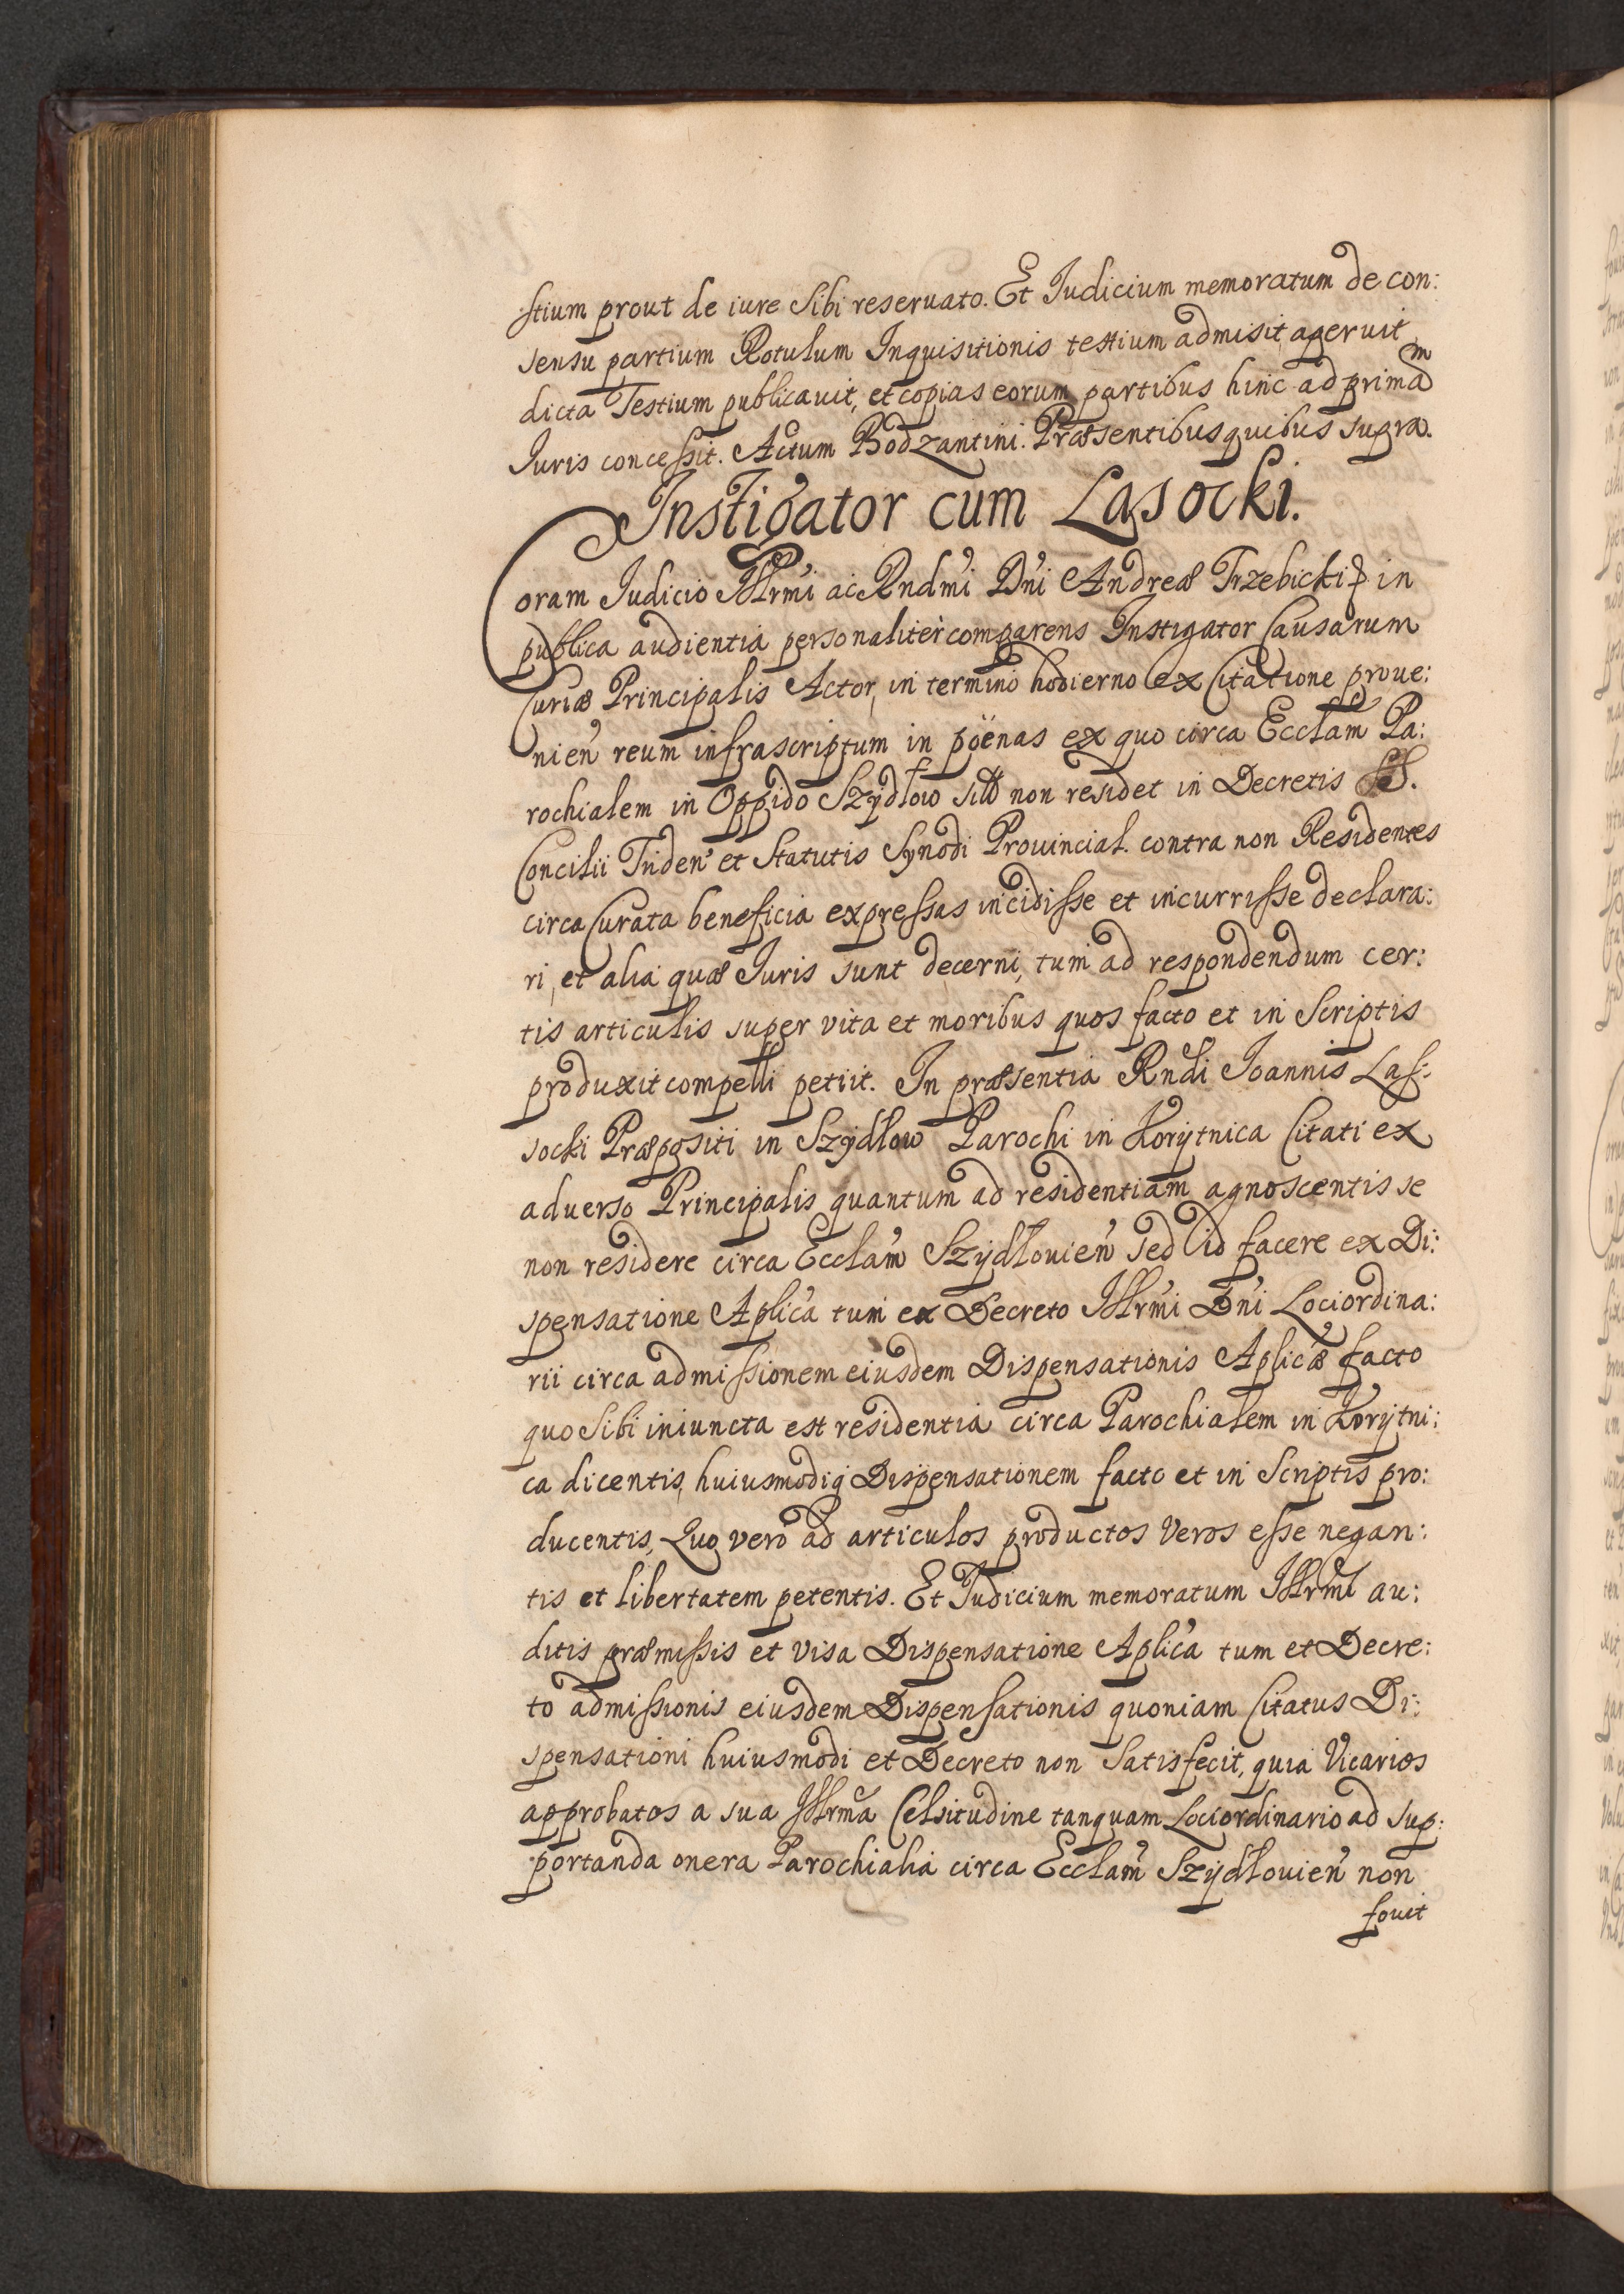 stium prout de iure sibi reseruato. Et Iudicium memoratum de con:
sensu partium Rotulum Inquisitionis testium admisit, aperuit,
dicta Testium publicauit, et copias eorum partibus hinc ad primam
Iuris conceſsit. Actum Bodzantini. Præsentibus quibus supra.
Instigator cum Lasocki.
Coram Iudicio Illrmi ac Rndmi Dni Andreæ Trzebicki in
publica audientia personaliter comparens Instigator Causarum
Curiæ Principalis Actor, in termino hodierno ex Citatione proue:
nien reum infrascriptum in pöenas ex quo circa Ecclam Pa:
rochialem in Oppido Szÿdłow non residet in Decretis S.
Concilii Triden et Statutis Synodi Prouincial. contra non Residentes
circa Curata beneficia expreſsas incidiſse et incurriſse declara:
ri, et alia quæ Iuris sunt decerni, tum ad respondendum cer:
tis articulis super vita et moribus quos facto et in Scriptis
produxit compelli petiit. In præsentia Rndi Ioannis Laſ:
socki Præpositi in Szÿdłow Parochi in Korÿtnica Citati ex
aduerso Principalis quantum ad residentiam agnoscentis se
non residere circa Ecclam Szÿdłouien sed id facere ex Di:
spensatione Aplica tum ex Decreto Illrmi Dni Lociordina:
rii circa admiſsionem eiusdem Dispensationis Aplicæ facto
quo sibi iniuncta est residentia circa Parochialem in Korÿtni:
ca dicentis, huiusmodiq Dispensationem facto et in Scriptis pro:
ducentis, Quo vero ad articulos productos Veros eſse negan:
tis et libertatem petentis. Et Iudicium memoratum Illrmi au:
ditis præmiſsis et visa Dispensatione Aplica tum et Decre:
to admiſsionis eiusdem Dispenſationis quoniam Citatus Di:
spensationi huiusmodi et Decreto non satisfecit, quia Vicarios
approbatos a sua Illrma Celsitudine tanquam Lociordinario ad sup:
portanda onera Parochialia circa Ecclam Szÿdłouien non
fouit